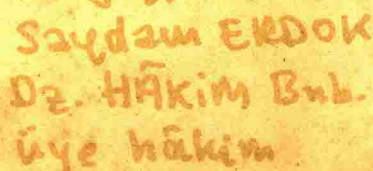 Saydam ERDOK
Dz. HÂKİM Bnb.
üye hâkim